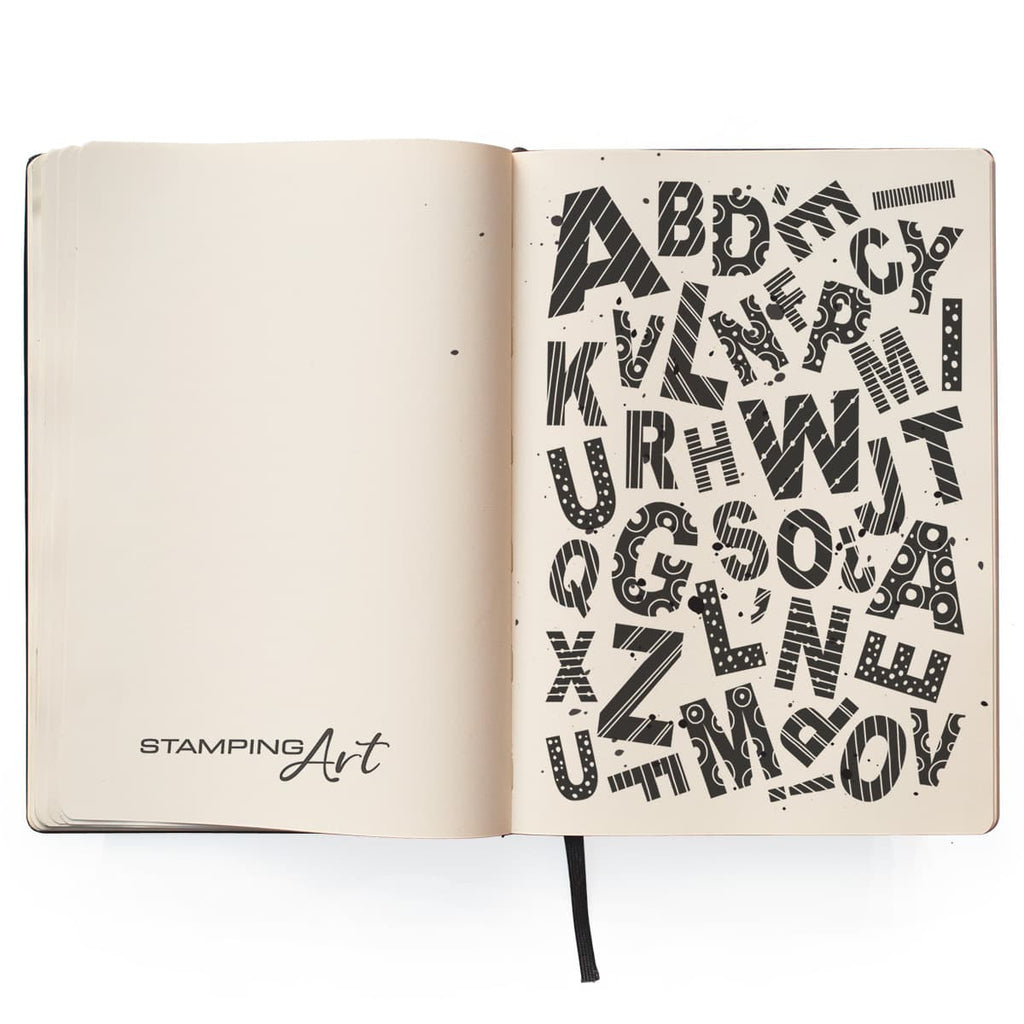 STAMPING Art
A B D ' E I
C Y
V L N F P
K M I
R H W J T
U
G S O ¿ A
Q
L , N
X Z E
M P O V
U F !